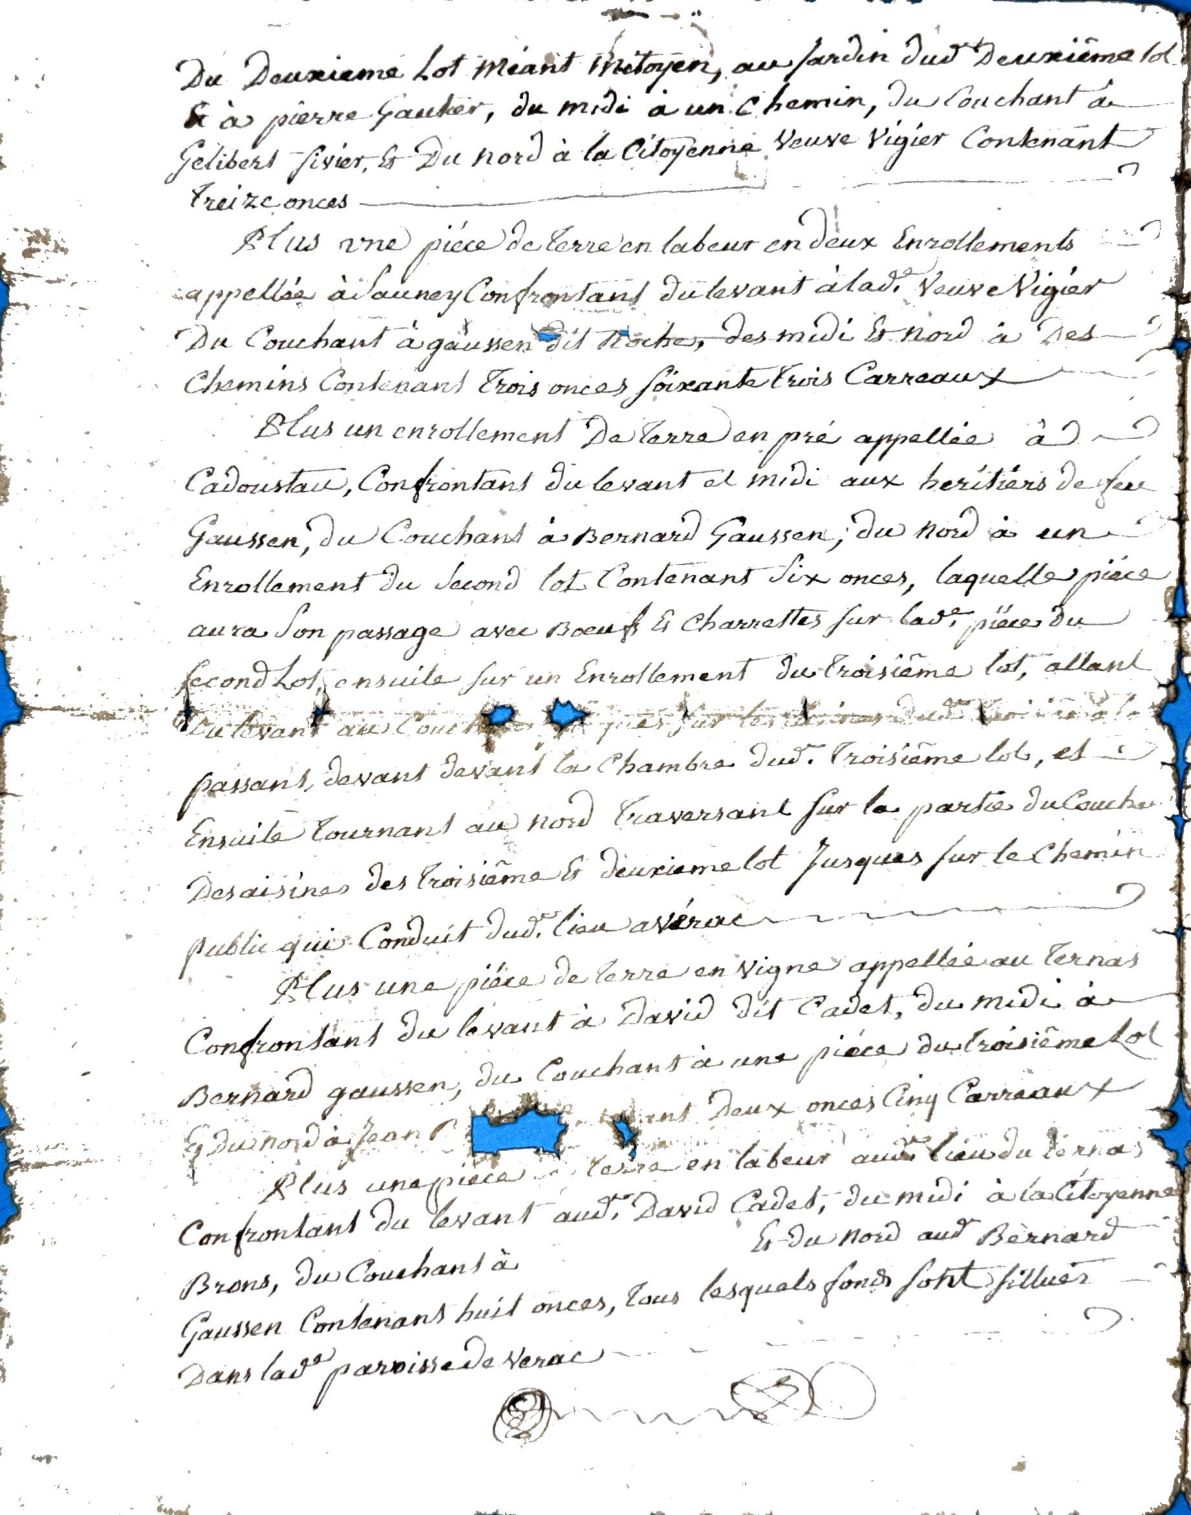 Du Deuxieme Lot méant mitoyen, au Jardin dud.t Deuxiême lot
& à pierre Gautier, du midi à un Chemin, du Couchant à
Gelibert Sivier, & Du nord à la Citoyenne Veuve Vigier Contenant
Treize onces
Plus une piéce de Terre en labeur en deux Enrollements
appellée à Sauney Confrontant du levant à lad.e Veuve Vigiér
Du Couchant à gaussen dit Roche, des midi & nord à Des
Chemins Contenant Trois onces soixante trois Carreaux
Plus un enrollement De Terre en pré appellée à
Cadoustau, Confrontant du levant et midi aux heritiérs de feu
Gaussen, du Couchant à Bernard Gaussen; du nord à un
Enrollement du Second lot Contenant Six onces, laquelle piéce
aura Son passage avec Boeufs & Charrettes sur lad.e piéce du
second Lot, ensuite sur un Enrollement du troisiême lot, allant
Du levant au sur les aisines Dud.t
passant, devant devant la Chambre dud.t Troisiême lot, et
Ensuite Tournant au nord Traversant sur la partie du Couchan
Des aisines des Troisiême & deuxieme lot Jusques sur le Chemin
public qui Conduit dud.t lieu a vérac
Plus une piéce de Terre en vigne appellée au Ternas
Confrontant du levant à David dit Cadet, du midi à
Bernard gaussen, du Couchant à une piéce du troisiême Lot
& Du nord à Jean Deux onces Cinq Carreaux
Plus une piéce Terre en labeur aud.t lieu du ternas
Confrontant du levant aud.t David Cadet, du midi à la Citoyenne
Brons, du Couchant à & du nord aud.t Bernard
Gaussen Contenant huit onces, Tous lesquels fonds sont sittués
Dans lad.e paroisse de verac